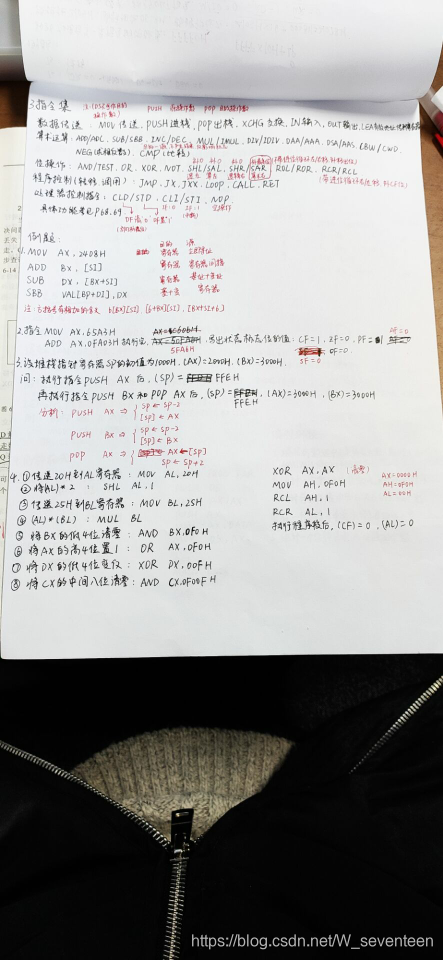 3.指令集
PUSH 源操作数 POP 目的操作数
数据传送: MOV 传送, PUSH 进栈, POP 出栈, XCHG 交换, IN 输入, OUT 输出, LEA
算术运算: ADD/ADC, SUB/SBB, INC/DEC, MUL/IMUL, DIV/IDIV, DAA/AAA, DSA/AAS, CBW/CWD,
NEG(求相反数), CMP(比较)
位操作: AND/TEST, OR, XOR, NOT, SHL/SAL, SHR/SAR, ROL/ROR, RCR/RCL
程序控制(转移 调用): JMP, JX, JXX, LOOP, CALL, RET
处理器控制指令: CLD/STD, CLI/STI, NOP.
具体功能看书P68.69
例题:
目的 源
1. MOV AX, 2408H 寄存器 立即寻址
ADD BX, [SI] 寄存器 寄存器间接
SUB DX, [BX+SI] 寄存器 基址+变址
SBB VAL[BP+DI], DX 基+变 寄存器
[BX+SI+6]
2.指令 MOV AX, 65A3H
ADD AX, 0FA03H 执行完, 写出状态标志位的值: CF=1, ZF=0, PF=1
5FA6H
OF=0
SF=0
3.设堆栈指针寄存器SP的初值为1000H, (AX)=2000H, (BX)=3000H,
问: 执行指令PUSH AX 后, (SP)= FFEH
再执行指令PUSH BX 和 POP AX 后, (SP)= FFEH, (AX)=3000H, (BX)=3000H
分析: PUSH AX ⇒ { SP ← SP-2
[SP] ← AX
PUSH BX ⇒ { SP ← SP-2
[SP] ← BX
POP AX ⇒ { AX ← [SP]
SP ← SP+2
4. ①传送20H到AL寄存器: MOV AL, 20H
②将(AL)*2 : SHL AL, 1
③传送25H到BL寄存器: MOV BL, 25H
④(AL)*(BL): MUL BL
⑤将BX的低4位清零: AND BX, 0F0H
⑥将AX的高4位置1: OR AX, 0F0H
⑦将DX的低4位变反: XOR DX, 00FH
⑧将CX的中间八位清零: AND CX, 0F00FH
XOR AX, AX (清零) AX=0000H
MOV AH, 0F0H AH=0F0H
RCL AH, 1 AL=00H
RCR AL, 1
执行程序段后, (CF)=0, (AL)=0
https://blog.csdn.net/W_seventeen